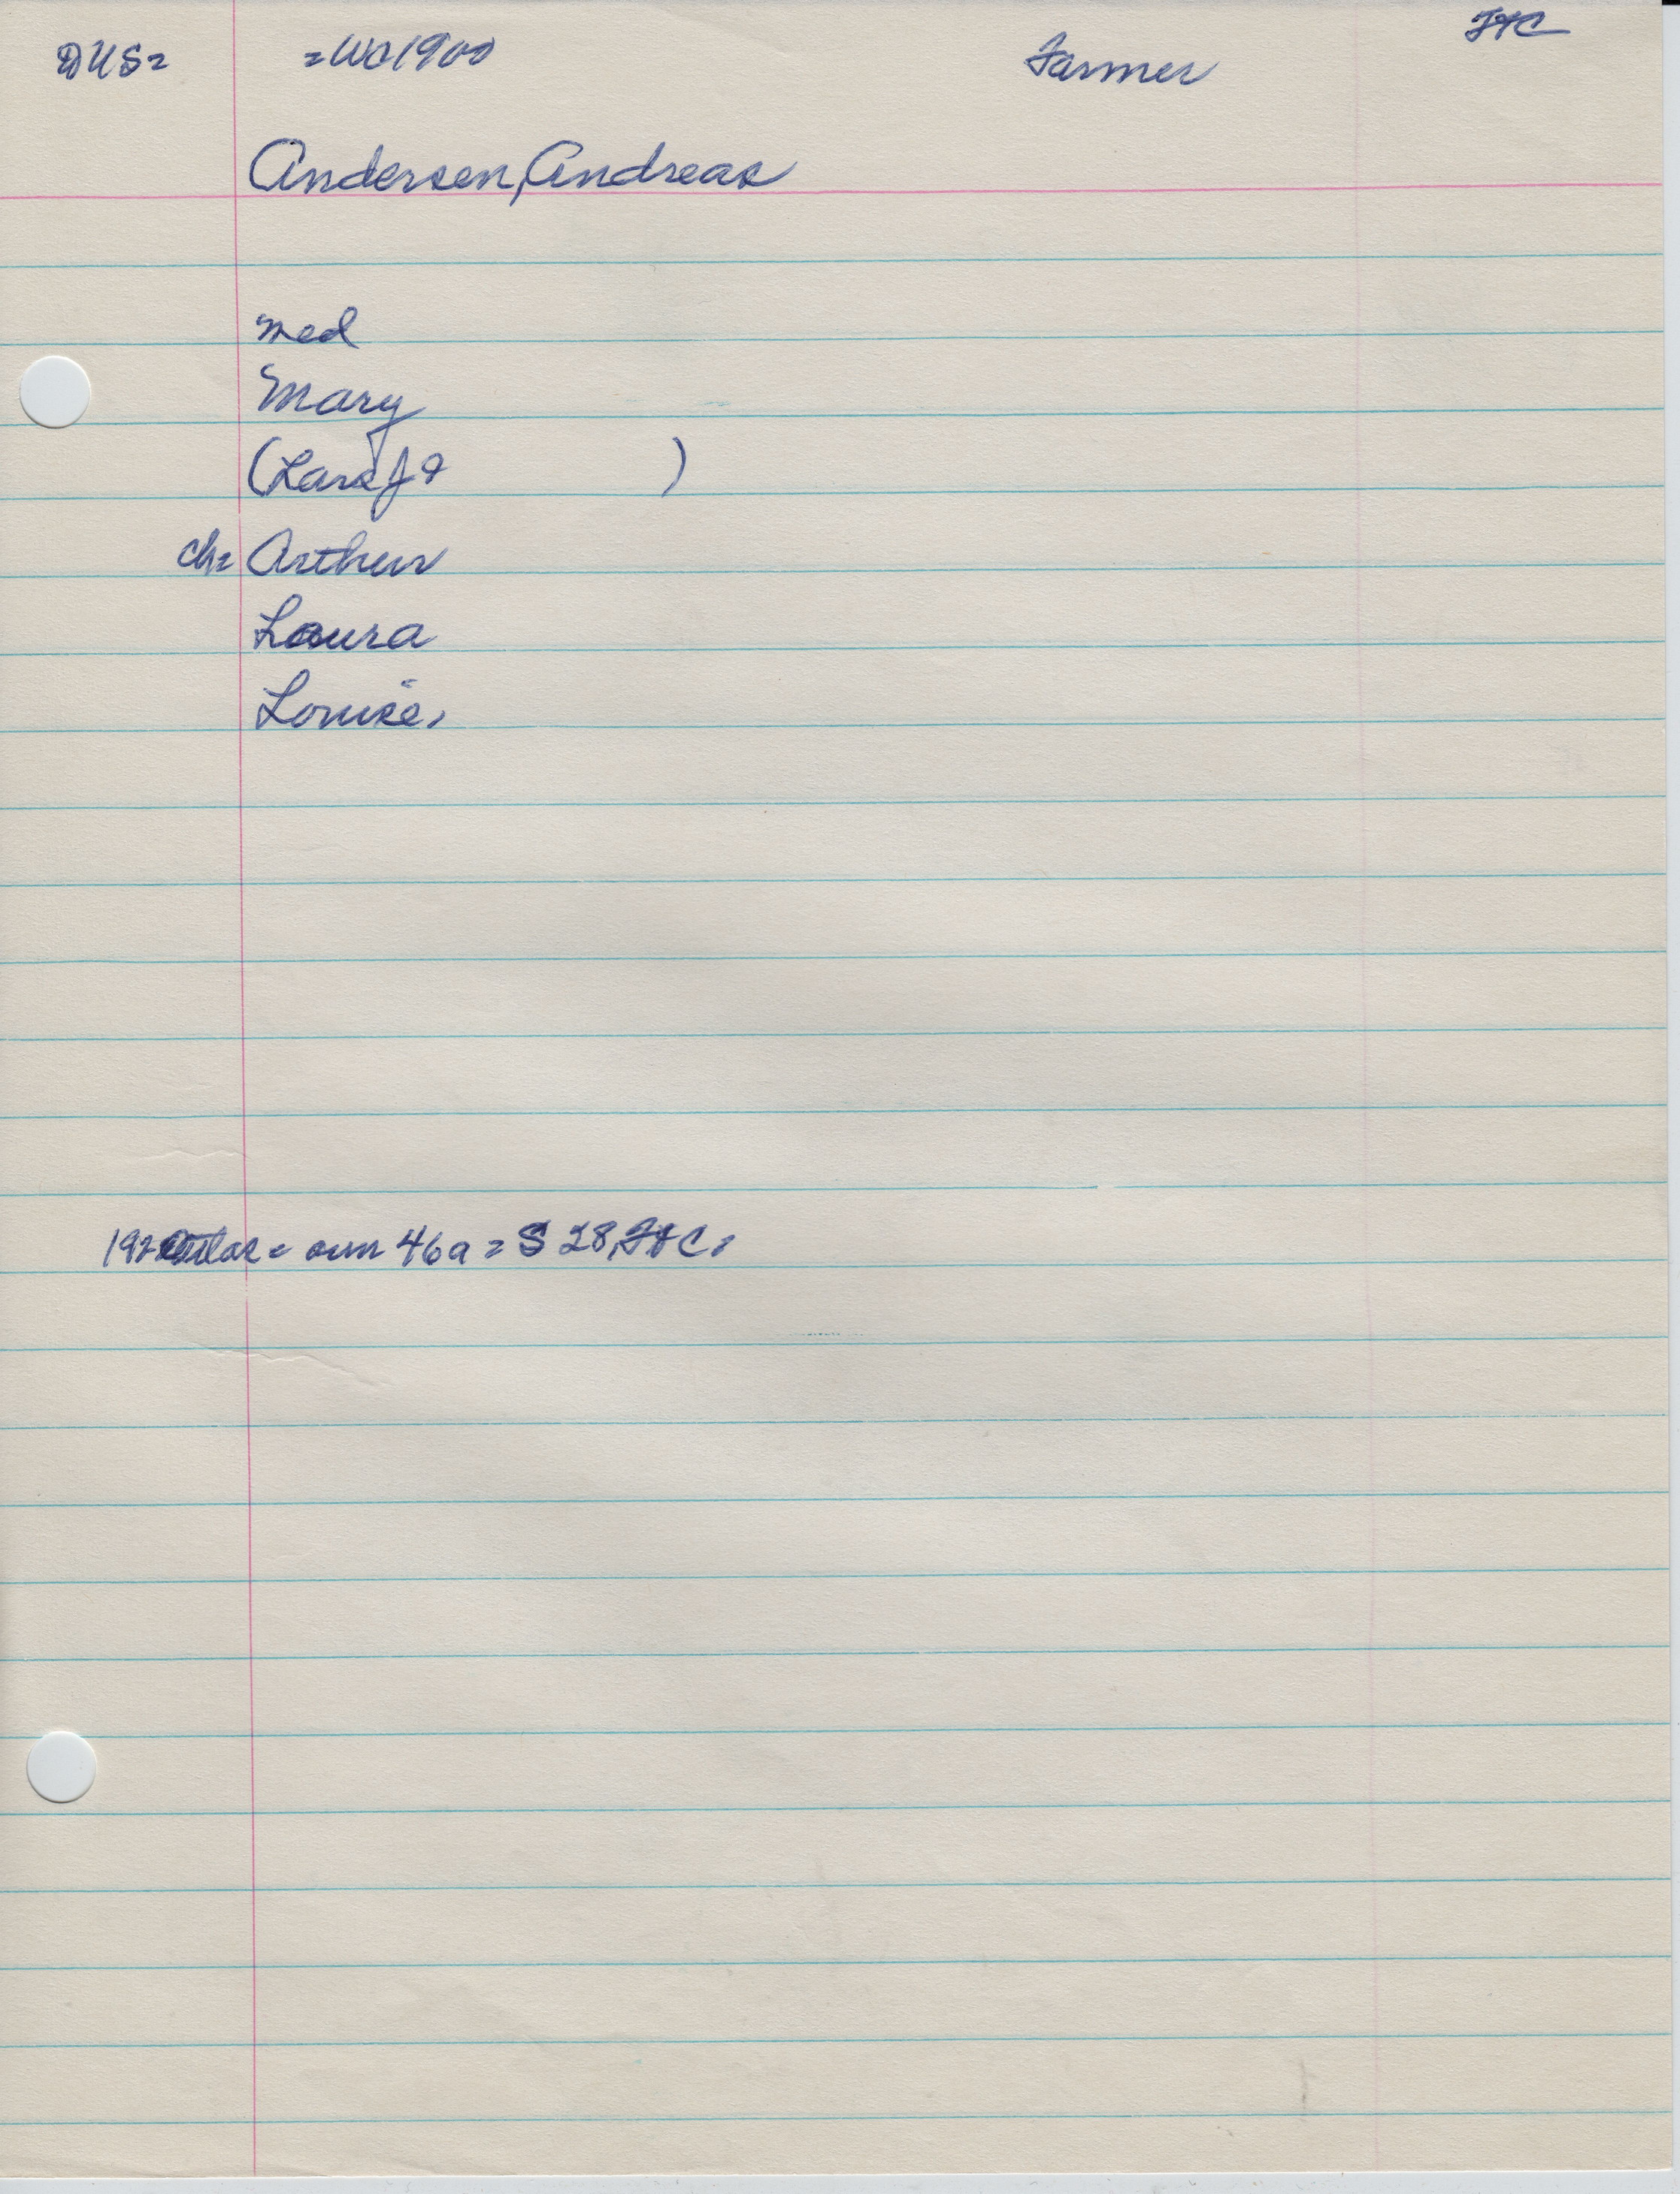 FTC
DUS= =WC1900 Farmer
Andersen, Andreas
med
Mary
(Lars J & )
ch= Arthur
Laura
Louise,
atlas = own 46a = S 28, FTC.